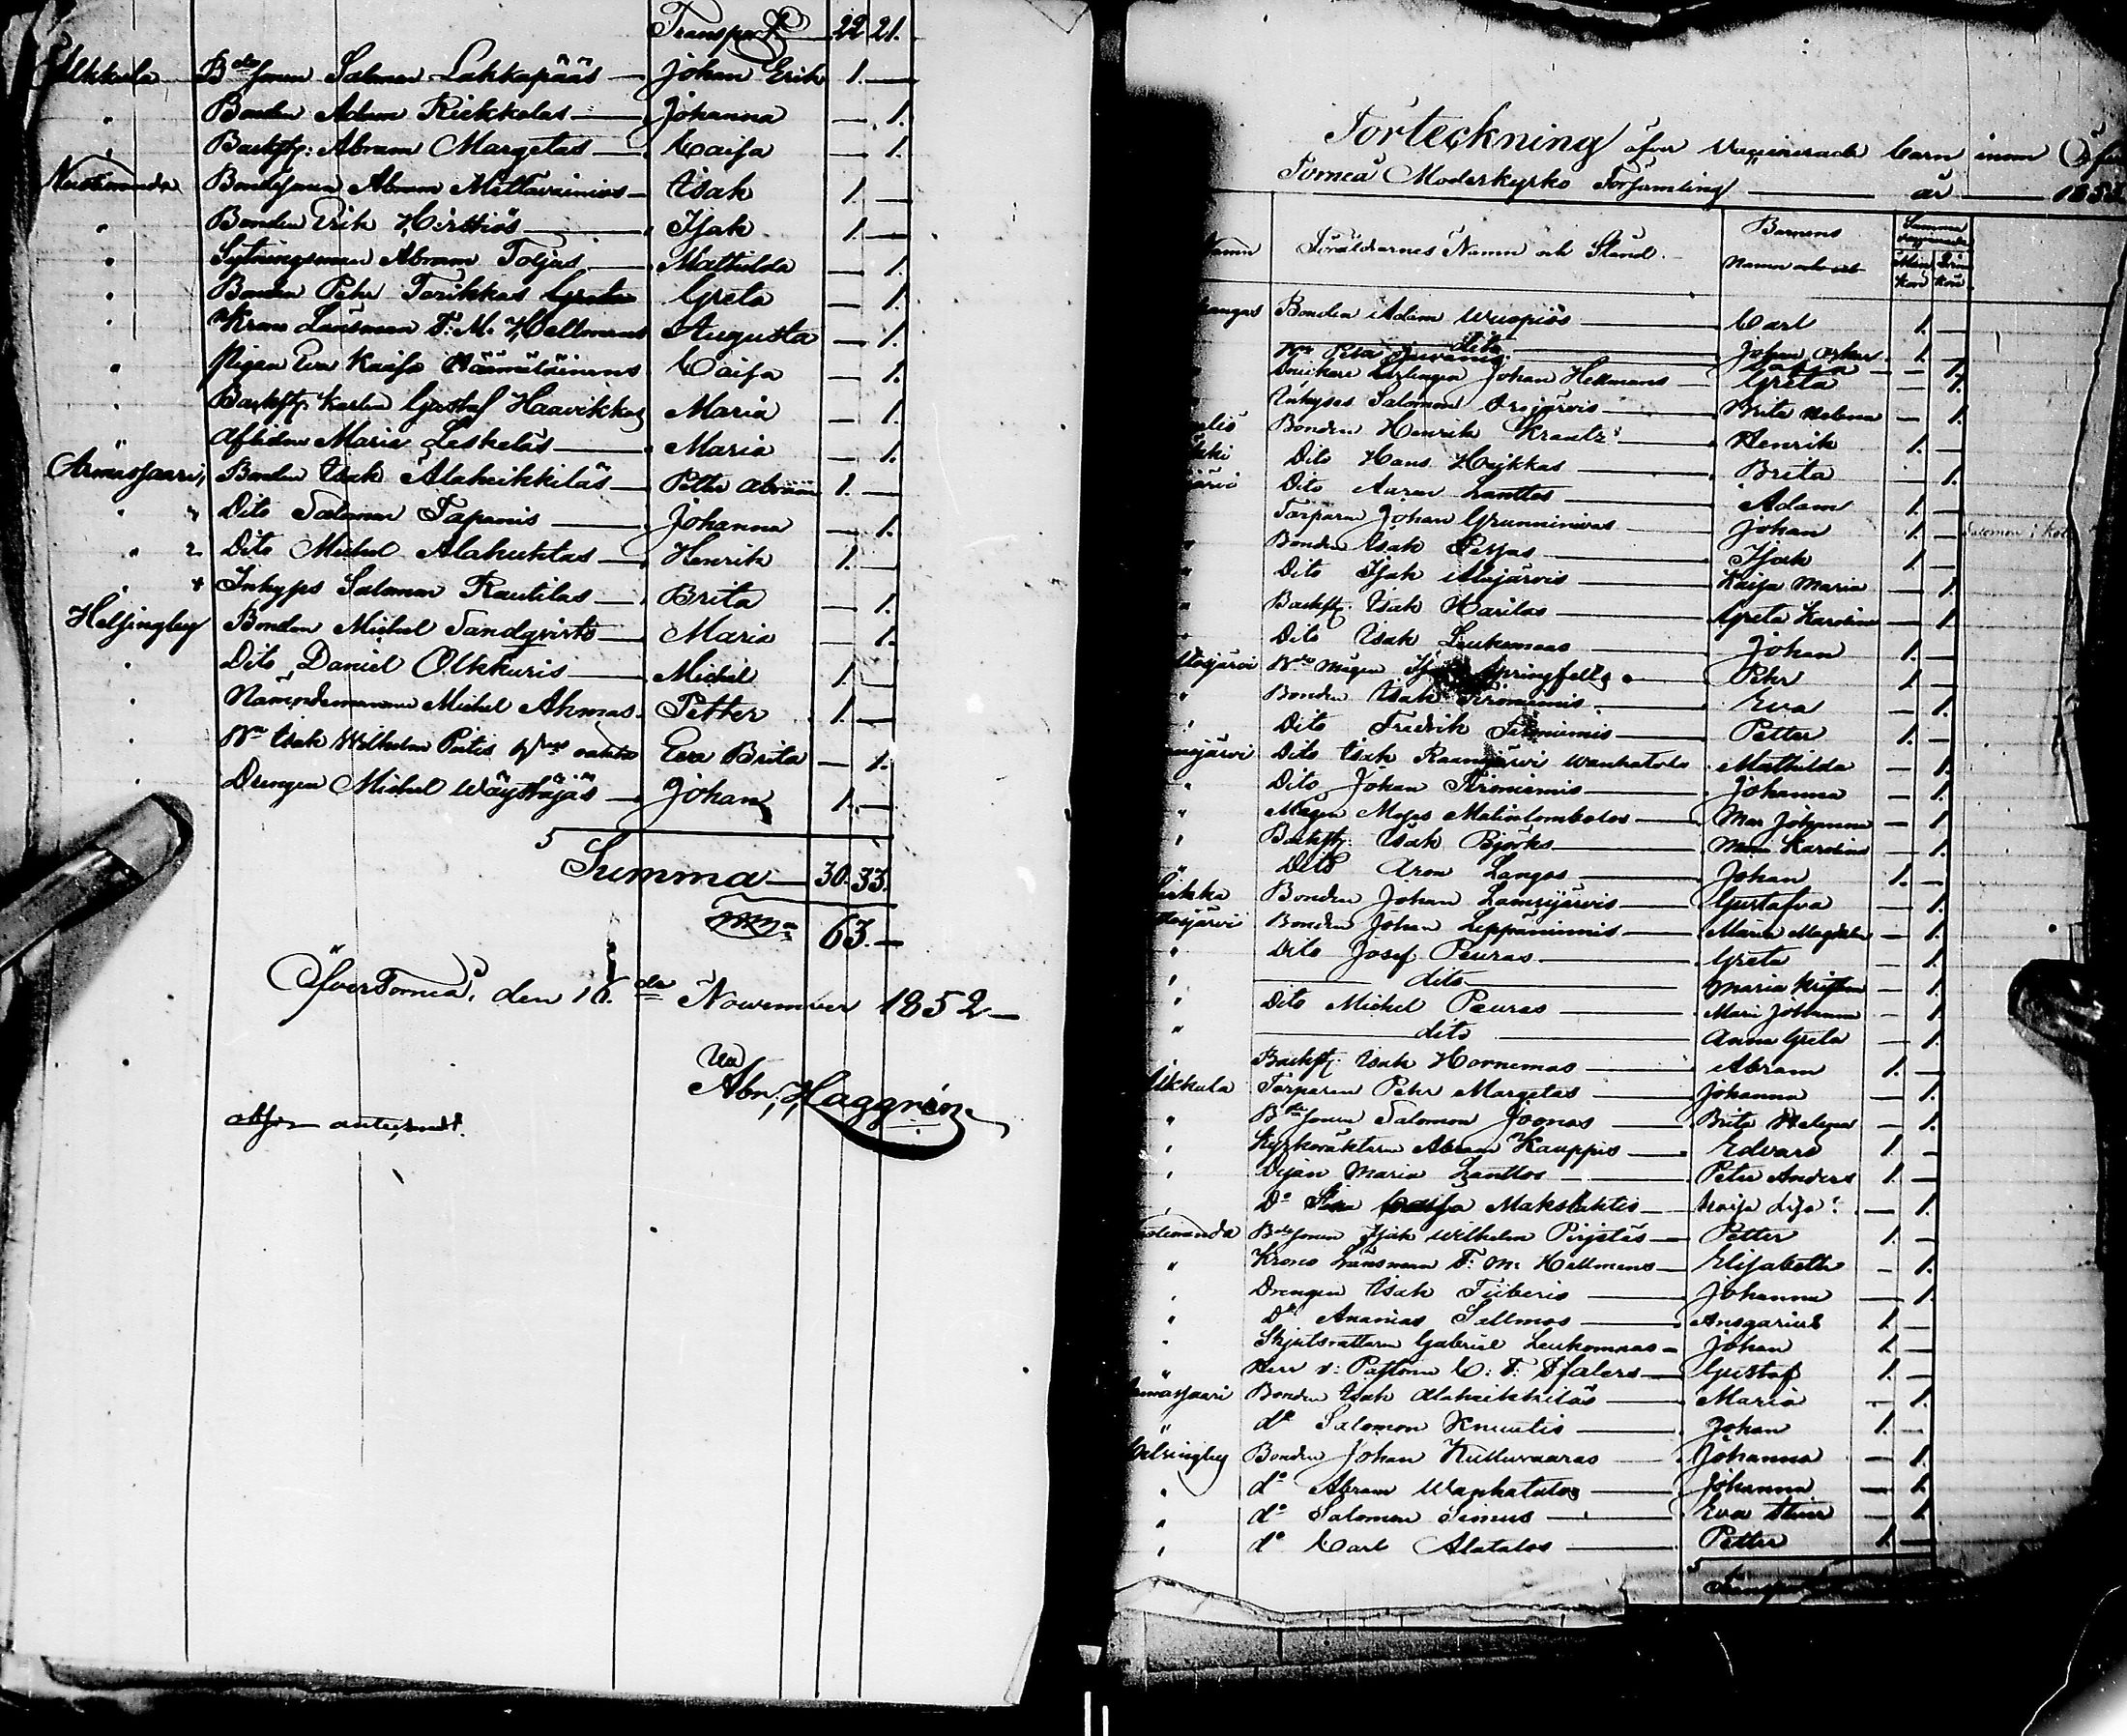 Transport 22 21.
Alkkula Bdesonen Salomon Lakkapääs Johan Erik 1. —
" Bonden Adam Rickkolas Johanna — 1.
" Backstf: Abram Margetas Caisa — 1.
Nuotioranda Bondesonen Abram Mellavainios Isak 1. —
" Bonden Erik Hirstiös Isak 1. —
" Sytningsman Abram Toljas Mathilda — 1.
" Bonden Pehr Torikkas Greta — 1.
" Krono Länsman F: M. Hellmans Augusta — 1.
" Pigan Eva Kaisa Caisa — 1.
" Backstf. Karlen Gustaf Haavikkos Maria — 1.
" Aflidne Maria Leskeläs Maria — 1.
Armassaari, Bonden Isak Alaheikkiläs Petter Abram 1. —
" Dito Salomon Tapanis Johanna — 1.
" 2 Dito Michel Alahuhtas Henrik 1. —
" Inhyses Salomon Rautilas Brita — 1.
Helsingby Bonden Michel Sandqvists Maria — 1.
" Dito Daniel Olkkuris Michel 1. —
" Nämndemannen Michel Ahmas Petter 1. —
" Isak Wilhelm Eva Brita — 1.
" Drengen Michel Wäystäjäs Johan 1. —
Summa 30. 33.
63. —
ÖfverTorneå, den 16 de November 1852 —
Abr: Haggrén
Förteckning öfver Vaccinerade barn inom Öfver
Torneå Moderkyrko Församling år 185
Namn Föräldrarnes Namn och Stånd Barnens Namn och Summa vaccinerade Man kön Qvin kön
angas Bonden Adam Wuopiös Carl 1. —
Dito Johan Oskar 1. —
Maria — 1.
Johan Hellmans Greta — 1.
Inhyses Salomon Orajärvis Brita Helena — 1.
Bonden Henrik Krantz Henrik 1. —
Dito Hans Heikkas Brita — 1.
järvi Dito Aaron Lanttos Adam 1. —
Torparen Johan Grunninivas Johan 1. — Salomon i
" Bonden Isak Isak 1. —
" Dito Isak Alajärvis Kaisa Maria — 1.
" Backstf. Isak Harilas Greta Karolina — 1.
" Dito Isak Leukomaas Johan 1. —
järvi mågen Springfelts Pehr 1. —
" Bonden Isak Nironiemis Eva — 1.
" Dito Fredrik Petter 1. —
järvi Dito Isak Raanujärvi Wanhatalo Mathilda — 1.
" Dito Johan Nironiemis Johanna — 1.
" Mågen Moses Matinlombolos Mar Johanna — 1.
" Backstf. Isak Björks Maria Karolina — 1.
" Dito Aron Langas Johan 1. —
Bonden Johan Lamsijärvis Gustafva — 1.
järvi Bonden Johan Leppäniemis Maria Magdalena — 1.
" Dito Josef Peuras Greta — 1.
" dito Maria Kristina — 1.
" Dito Michel Peuras Mari Johanna — 1.
" dito Anna Greta — 1.
Backstf. Isak Hornemas Abram 1. —
lkkula Torparen Pehr Margetas Johanna — 1.
" Bdesonen Salomon Joonas Brita Helena — 1.
" Kyrkoväktaren Abram Kauppis Edvard 1. —
" Pigan Maria Lanttos Peter Anders 1. —
" Do Stina Caisa Kaisa Lisa — 1.
oranda Bdesonen Isak Wilhelm Pirjetäs Petter 1. —
" Krono Länsman F: M: Hellmans Elisabeth — 1.
" Drengen Isak Fiiberis Johanna — 1.
" Do Ananias Sallmos Ansgarius 1. —
" Skjutsrättaren Gabriel Leukomaas Johan 1. —
" Herr v: Pastorn C: F: Stalers Gustaf 1. —
assaari Bonden Isak Alaheikkiläs Maria — 1.
" do Salomon Knuutis Johan 1. —
elsingby Bonden Johan Kulluvaaras Johanna — 1.
" do Abram Wanhatalos Johanna — 1.
" do Salomon Simus Eva — 1.
" do Carl Alatalos Petter 1. —
Transport